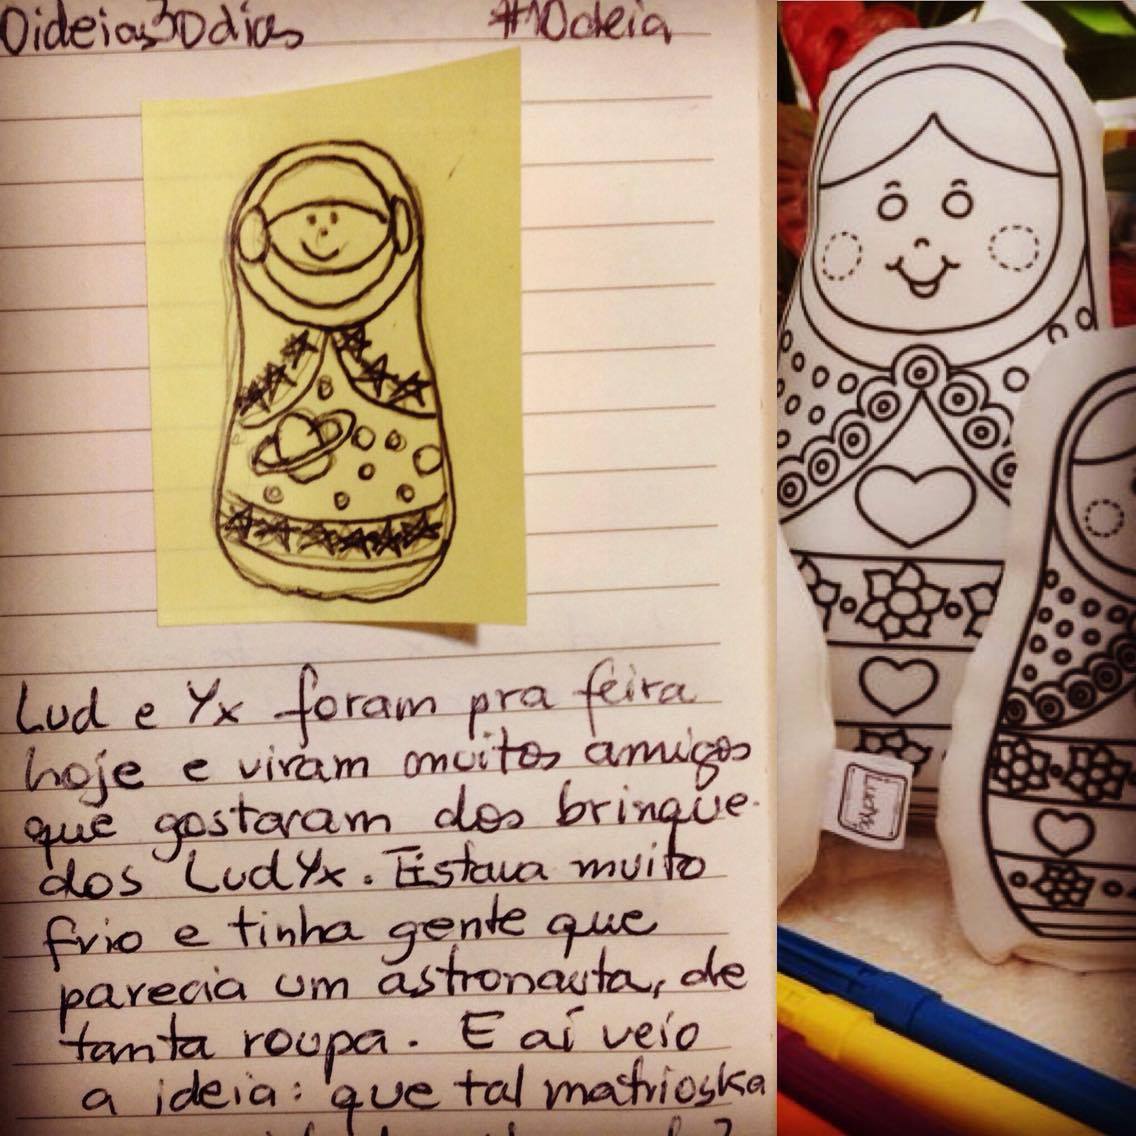 0ideias30dias #10deia
Lud e Yx foram pra feira
hoje e viram muitos amigos
que gostaram dos brinque-
dos LudYx. Estava muito
frio e tinha gente que
parecia um astronauta, de
tanta roupa. E aí veio
a ideia: que tal matrioska
LudYx